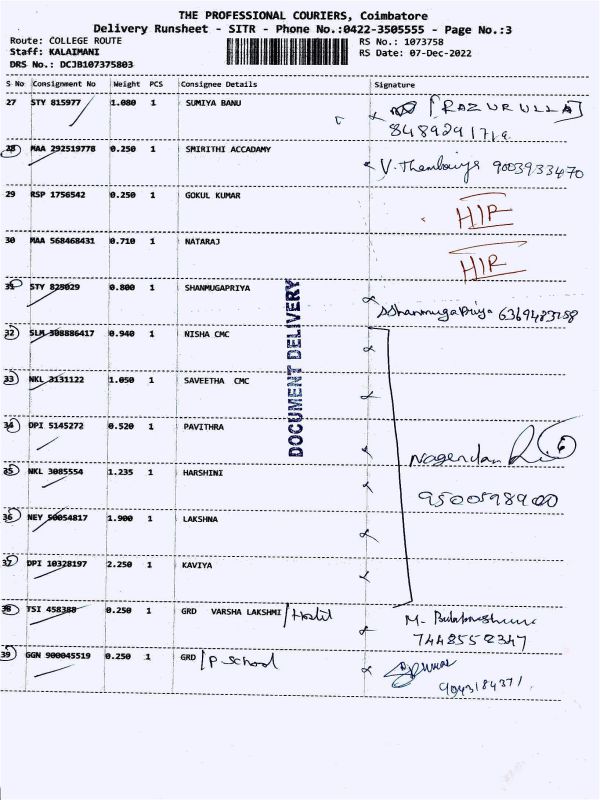 THE PROFESSIONAL COURIERS, Coimbatore
Delivery Runsheet - SITR - Phone No.:0422-3505555 - Page No.:3
Route: COLLEGE ROUTE RS No.: 1073758
Staff: KALAIMANI RS Date: 07-Dec-2022
DRS No.: DCJB107375803
S No Consignment No Weight PCS Consignee Details Signature
27 STY 815977 1.080 1 SUMIYA BANU [RAZURULLA]
28 MAA 292519778 0.250 1 SMIRITHI ACCADAMY
9003933470
29 RSP 1756542 0.250 1 GOKUL KUMAR HIR
30 MAA 568468431 0.710 1 NATARAJ HIR
31 STY 829029 0.800 1 SHANMUGAPRIYA
DOCUMENT DELIVERY
32 SLM 308886417 0.940 1 NISHA CMC
33 NKL 3131122 1.050 1 SAVEETHA CMC
34 DPI 5145272 0.520 1 PAVITHRA Nagendan 6
35 NKL 3085554 1.235 1 HARSHINI 9500598900
36 NEY 50054817 1.900 1 LAKSHNA
37 DPI 10328197 2.250 1 KAVIYA
38 TSI 458388 0.250 1 GRD VARSHA LAKSHMI /Hostel M-
7448552347
39 GGN 900045519 0.250 1 GRD /P school
9043184371